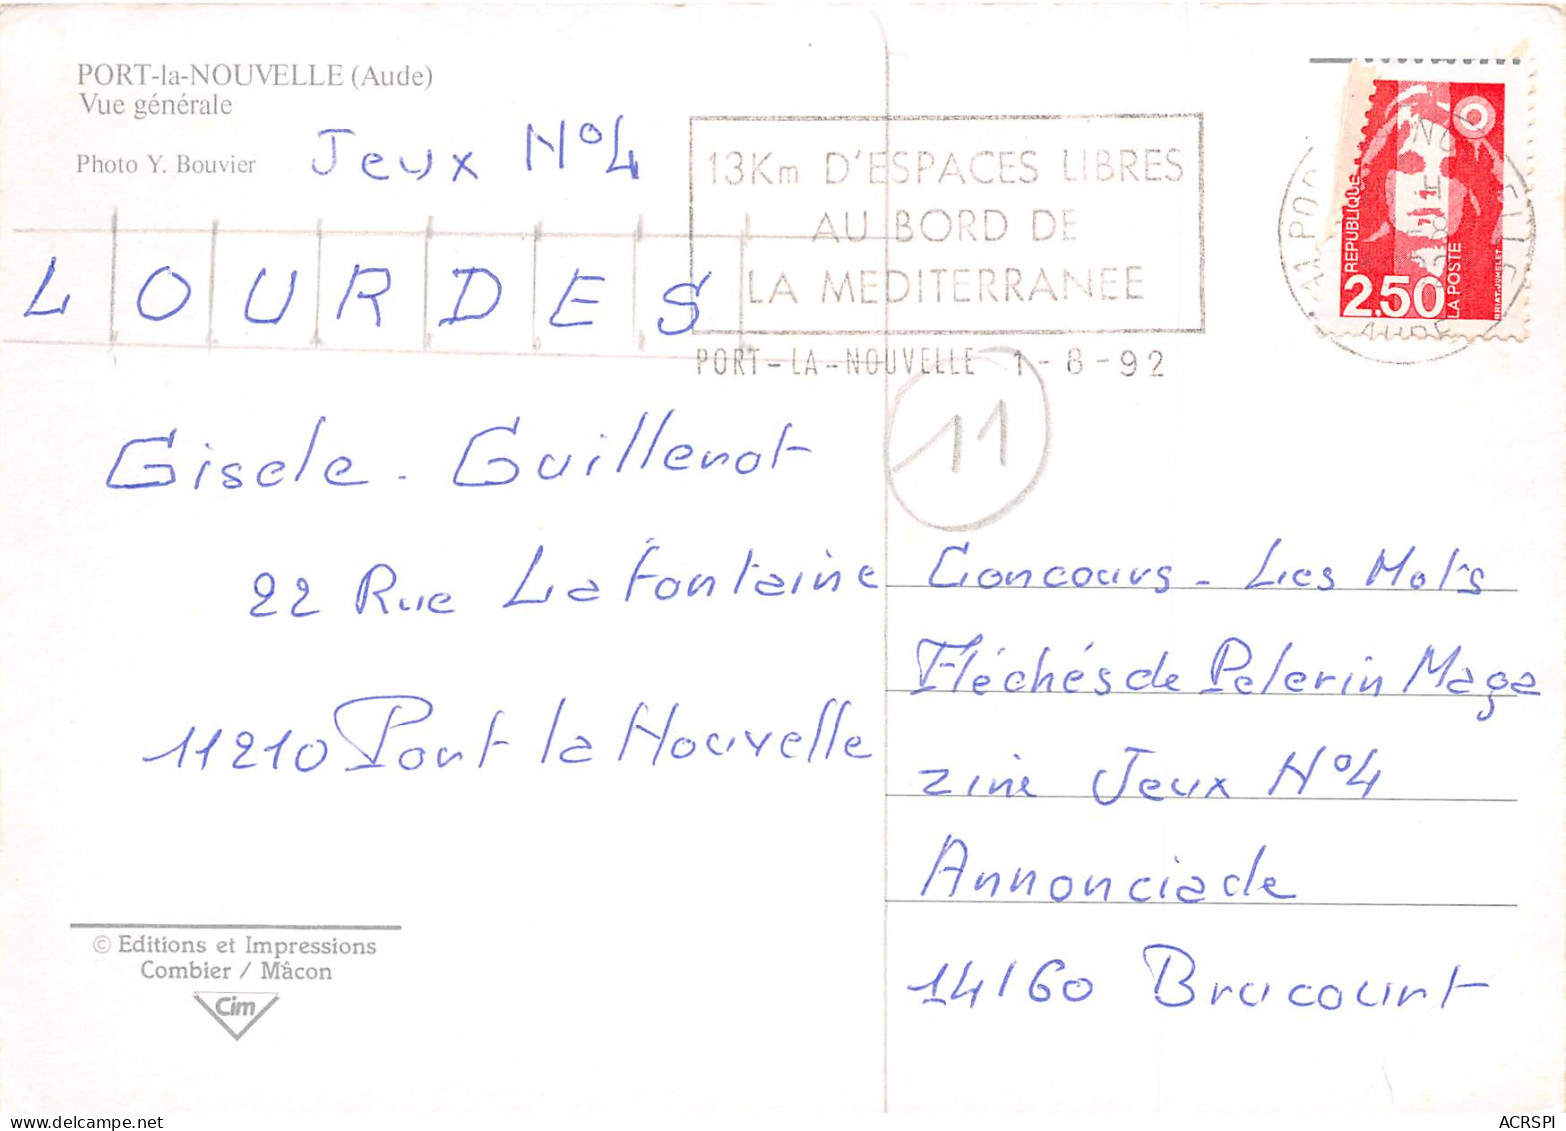 PORT-la-NOUVELLE (Aude)
Vue générale
Photo Y. Bouvier
Jeux N°4
LOURDES
13Km D'ESPACES LIBRES
AU BORD DE
LA MEDITERRANEE
PORT-LA-NOUVELLE 1-8-92
REPUBLIQUE
2,50
LA POSTE
AUDE
11
Gisele. Guillenot
22 Rue La Fontaine
11210 Port la Nouvelle
Concours - Les Mots
Fléchés de Pelerin Maga
zine Jeux N°4
Annonciade
14160 Brucourt
© Editions et Impressions
Combier / Mâcon
Cim
ACRSPI